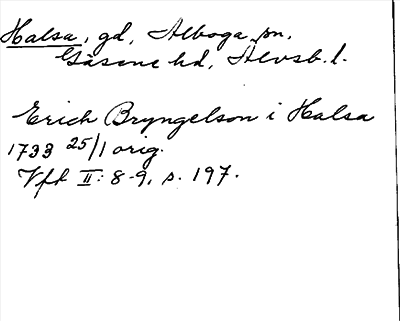 Halsa, gd, Alboga sn,
Gäsene hd, Älvsb. l.
Erich Bryngelson i Halsa
1733 25/1 orig.
Vft II: 8-9, s. 197.